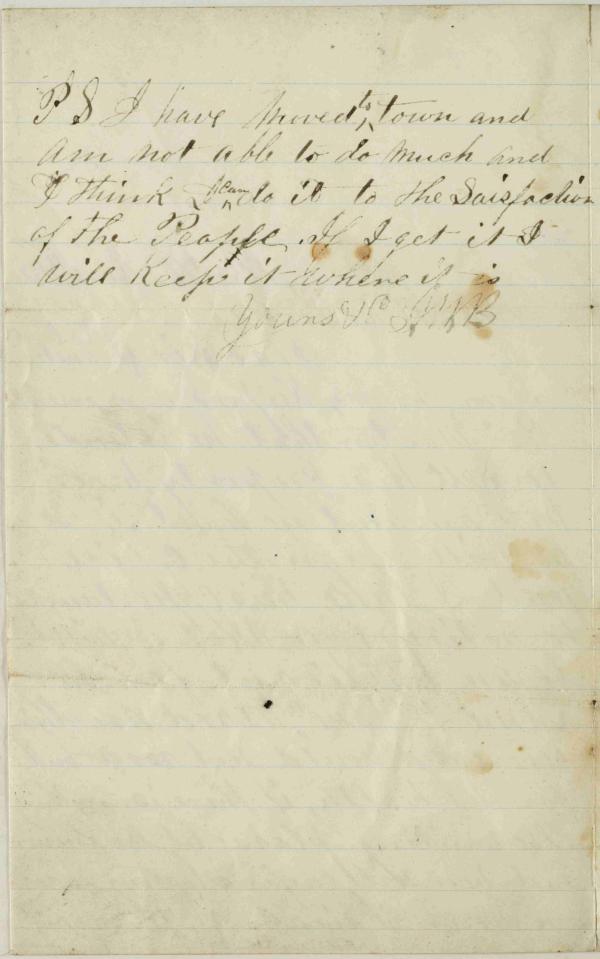 P S I have moved to town and
am not able to do much and
I think I can do it to the Saisfaction
of the People. If I get it I
will Keep it where it is
Yours &c